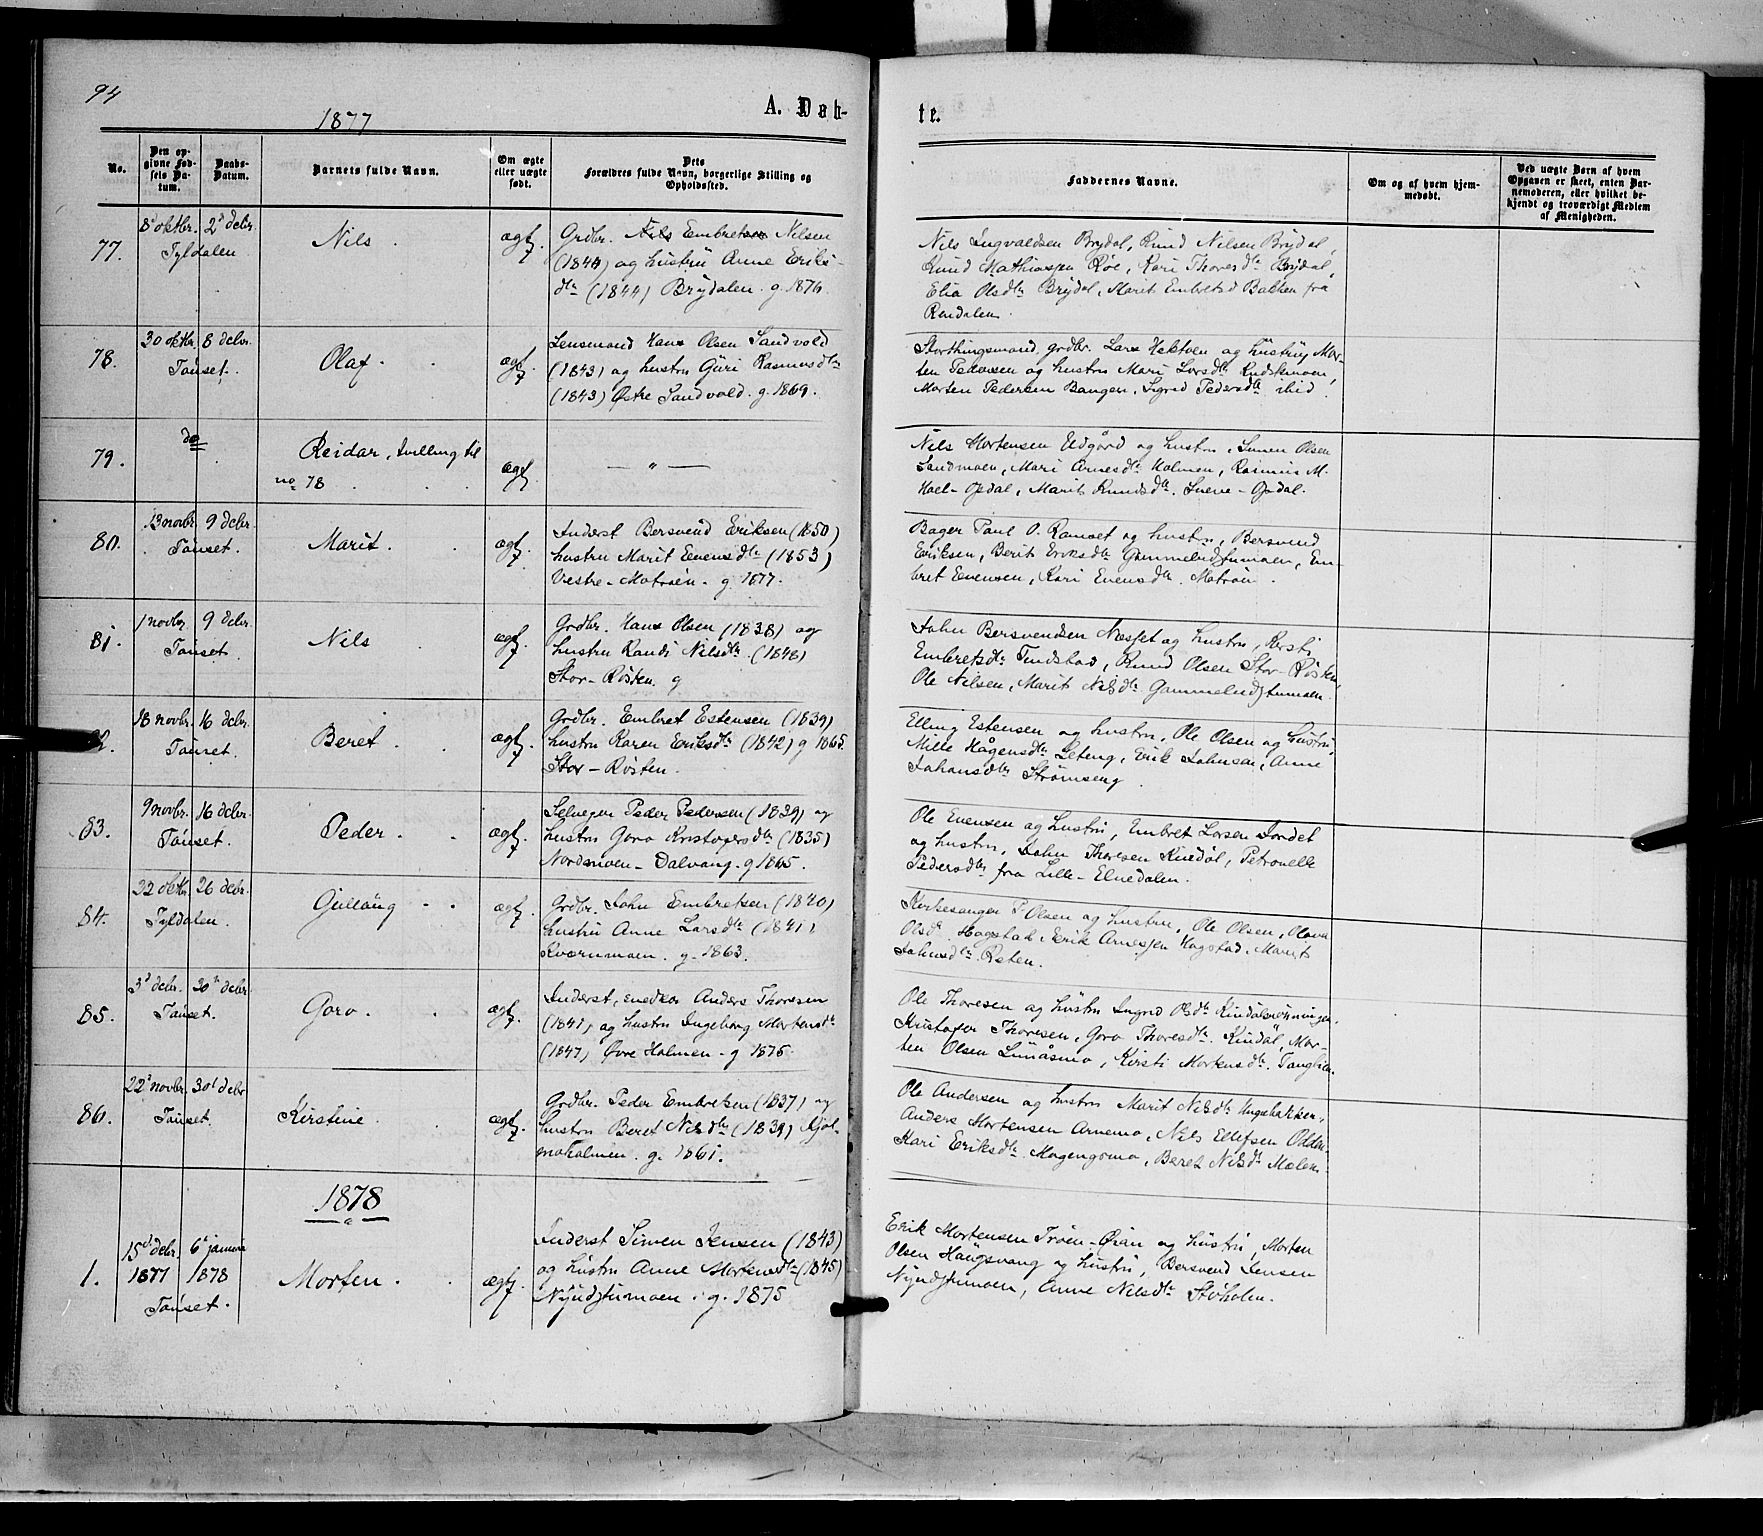 94
1877
A. Døb-
te.
No.
Den op-
givne Fød-
sels Da-
tum.
Daabs-
Datum.
Barnets fulde Navn.
Om ægte
eller uægte
født.
Dets
Forældres fulde Navn, borgerlige Stilling og
Opholdssted.
Faddernes Navne.
Om og af hvem hjem-
medøbt.
Ved uægte Børn af hvem
Opgaven er skeet, enten Bar-
nemoderen, eller hvilket be-
kjendt og troværdigt Medlem
af Menigheden.
77.
8d oktbr. 2d debr.
Tyldalen
Nils
ægt.
Grdbr. Nils Embretsen Nilsen
(1844) og hustru Anne Eriks-
dtr (1844) Brydalen. g. 1876.
Nils Ingvaldsen Brydal, Knud Nilsen Brydal,
Knud Mathiassen Røe, Kari Thoresdtr Brydal,
Elia Olsdtr Brydal, Marit Embretsd Bakken fra
Rendalen.
78.
30 oktbr. 8 debr.
Tønset.
Olaf
ægt.
Lensmand Hans Olsen Sandvold
(1843) og hustru Guri Rasmusdtr
(1843) Østre Sandvold. g. 1869.
Storthingsmand, grdbr. Lars Hektoen og hustru, Mor-
ten Pedersen og hustru Mari Larsdtr
Morten Pedersen Bangen, Sigrid Pedersdtr ibid.
79.
do
Reidar, tvilling til
no 78
ægt.
— " —
Nils Mortensen Udgård og hustru, Simen Olsen
Sandmoen, Mari Arnesdtr Holmen, Rasmus M.
Hoel-Opdal, Marit Knudsdtr. Sneve-Opdal.
80.
13 novbr. 9 debr.
Tønset.
Marit
ægt.
Inderst Bersvend Eriksen (1850)
hustru Marit Evensdtr (1853)
Vestre-Motrøen. g. 1877.
Bager Paul O. Ramset og hustru, Bersvend
Eriksen, Berit Eriksdtr Gammeludstumoen, Em-
bret Evensen, Kari Evensdtr. Motrøen.
81.
1 novbr. 9 debr.
Tønset.
Nils
ægt.
Grdbr. Hans Olsen (1838) og
hustru Randi Nilsdtr. (1848)
Stor-Røsten. g
John Bersvendsen Næsset og hustru, Kersti
Embretsdtr Tundstad, Knud Olsen Stor-Røsten,
Ole Nilsen, Marit Nilsdtr Gammeludstumoen.
82.
18 novbr. 16 debr.
Tønset.
Beret
ægt.
Grdbr. Embret Estensen (1839)
hustru Karen Eriksdtr (1842) g 1865
Stor-Røsten.
Elling Estensen og hustru, Ole Olsen og hustru,
Mille Hågensdtr Leteng, Erik Johnsen, Anne
Johansdtr Strømseng
83.
9 novbr. 16 debr.
Tønset.
Peder
ægt.
Selveier Peder Pedersen (1839) og
hustru Goro Kristofersdtr (1835)
Nordsmoen-Dalvang. g 1865.
Ole Evensen og hustru, Embret Larsen Jordet
og hustru, John Thoresen Kurdøl, Petronelle
Pedersdtr fra Lille-Elvedalen.
84.
22 oktbr. 26 debr.
Tyldalen.
Gullaug
ægt.
Grdbr. John Embretsen (1840)
hustru Anne Larsdtr (1841)
Kværnmoen. g. 1863.
Kirkesanger P. Olsen og hustru, Ole Olsen, Olava
Olsdtr Hogstad, Erik Arnesen Hogstad, Marit
Johnsdtr Røten.
85.
3d debr. 30te debr.
Tønset.
Goro.
ægt.
Inderst, snedker Anders Thoresen
(1841) og hustru Ingeborg Mortensdtr
(1847) Øvre Holmen. g 1875.
Ole Thoresen og hustru Ingrid Olsdtr
Kristofer Thoresen, Goro Thoresdtr. Kurdøl, Mor-
ten Olsen Linåsmo, Kirsti Mortensdtr.
86.
22d novbr. 30te debr
Tønset.
Kirstine
ægt.
Grdbr. Peder Embretsen (1837) og
hustru Beret Nilsdtr (1839)
g. 1861.
Ole Andersen og hustru Marit Nilsdtr
Anders Mortensen Arnemo, Nils Ellefsen Odden
Kari Eriksdtr. Magengomo, Beret Nilsdtr Mælen.
1878
1.
15d debr. 6te januar
1877 1878
Tønset.
Morten
ægt.
Inderst Simen Jensen (1843)
og hustru Anne Mortensdtr (1845)
Nyudstumoen. g. 1875
Erik Mortensen Trøen-Øian og hustru, Morten
Olsen Haugsvang og hustru, Bersvend Jensen
Nyudstumoen, Anne Nilsdtr Støholen.